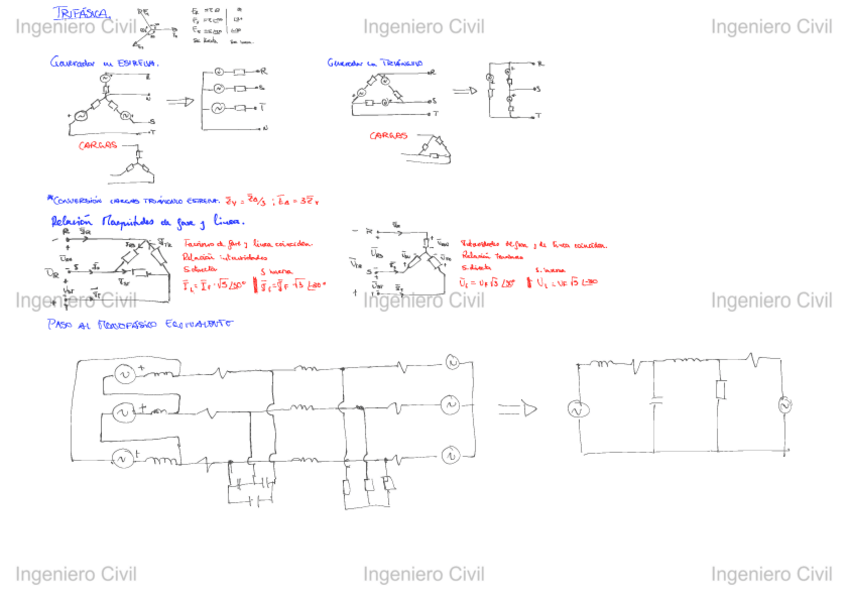 TRIFÁSICA.
Ingeniero Civil Ingeniero Civil Ingeniero Civil
Generador en ESTRELLA. Generador en TRIÁNGULO
R R R
N S S
S T T
T
R
S
T
N
CARGAS CARGAS
*CONVERSIÓN CARGAS TRIÁNGULO ESTRELLA. Z̄Y = Z̄Δ/3 ; Z̄Δ = 3Z̄Y
Relación Magnitudes de fase y línea.
Tensiones de fase y línea coinciden. Intensidades de fase y de línea coinciden.
Relación intensidades Relación Tensiones
S directa S inversa S. directa S. inversa
Ingeniero Civil Ingeniero Civil Ingeniero Civil
PASO AL MONOFÁSICO EQUIVALENTE
Ingeniero Civil Ingeniero Civil Ingeniero Civil